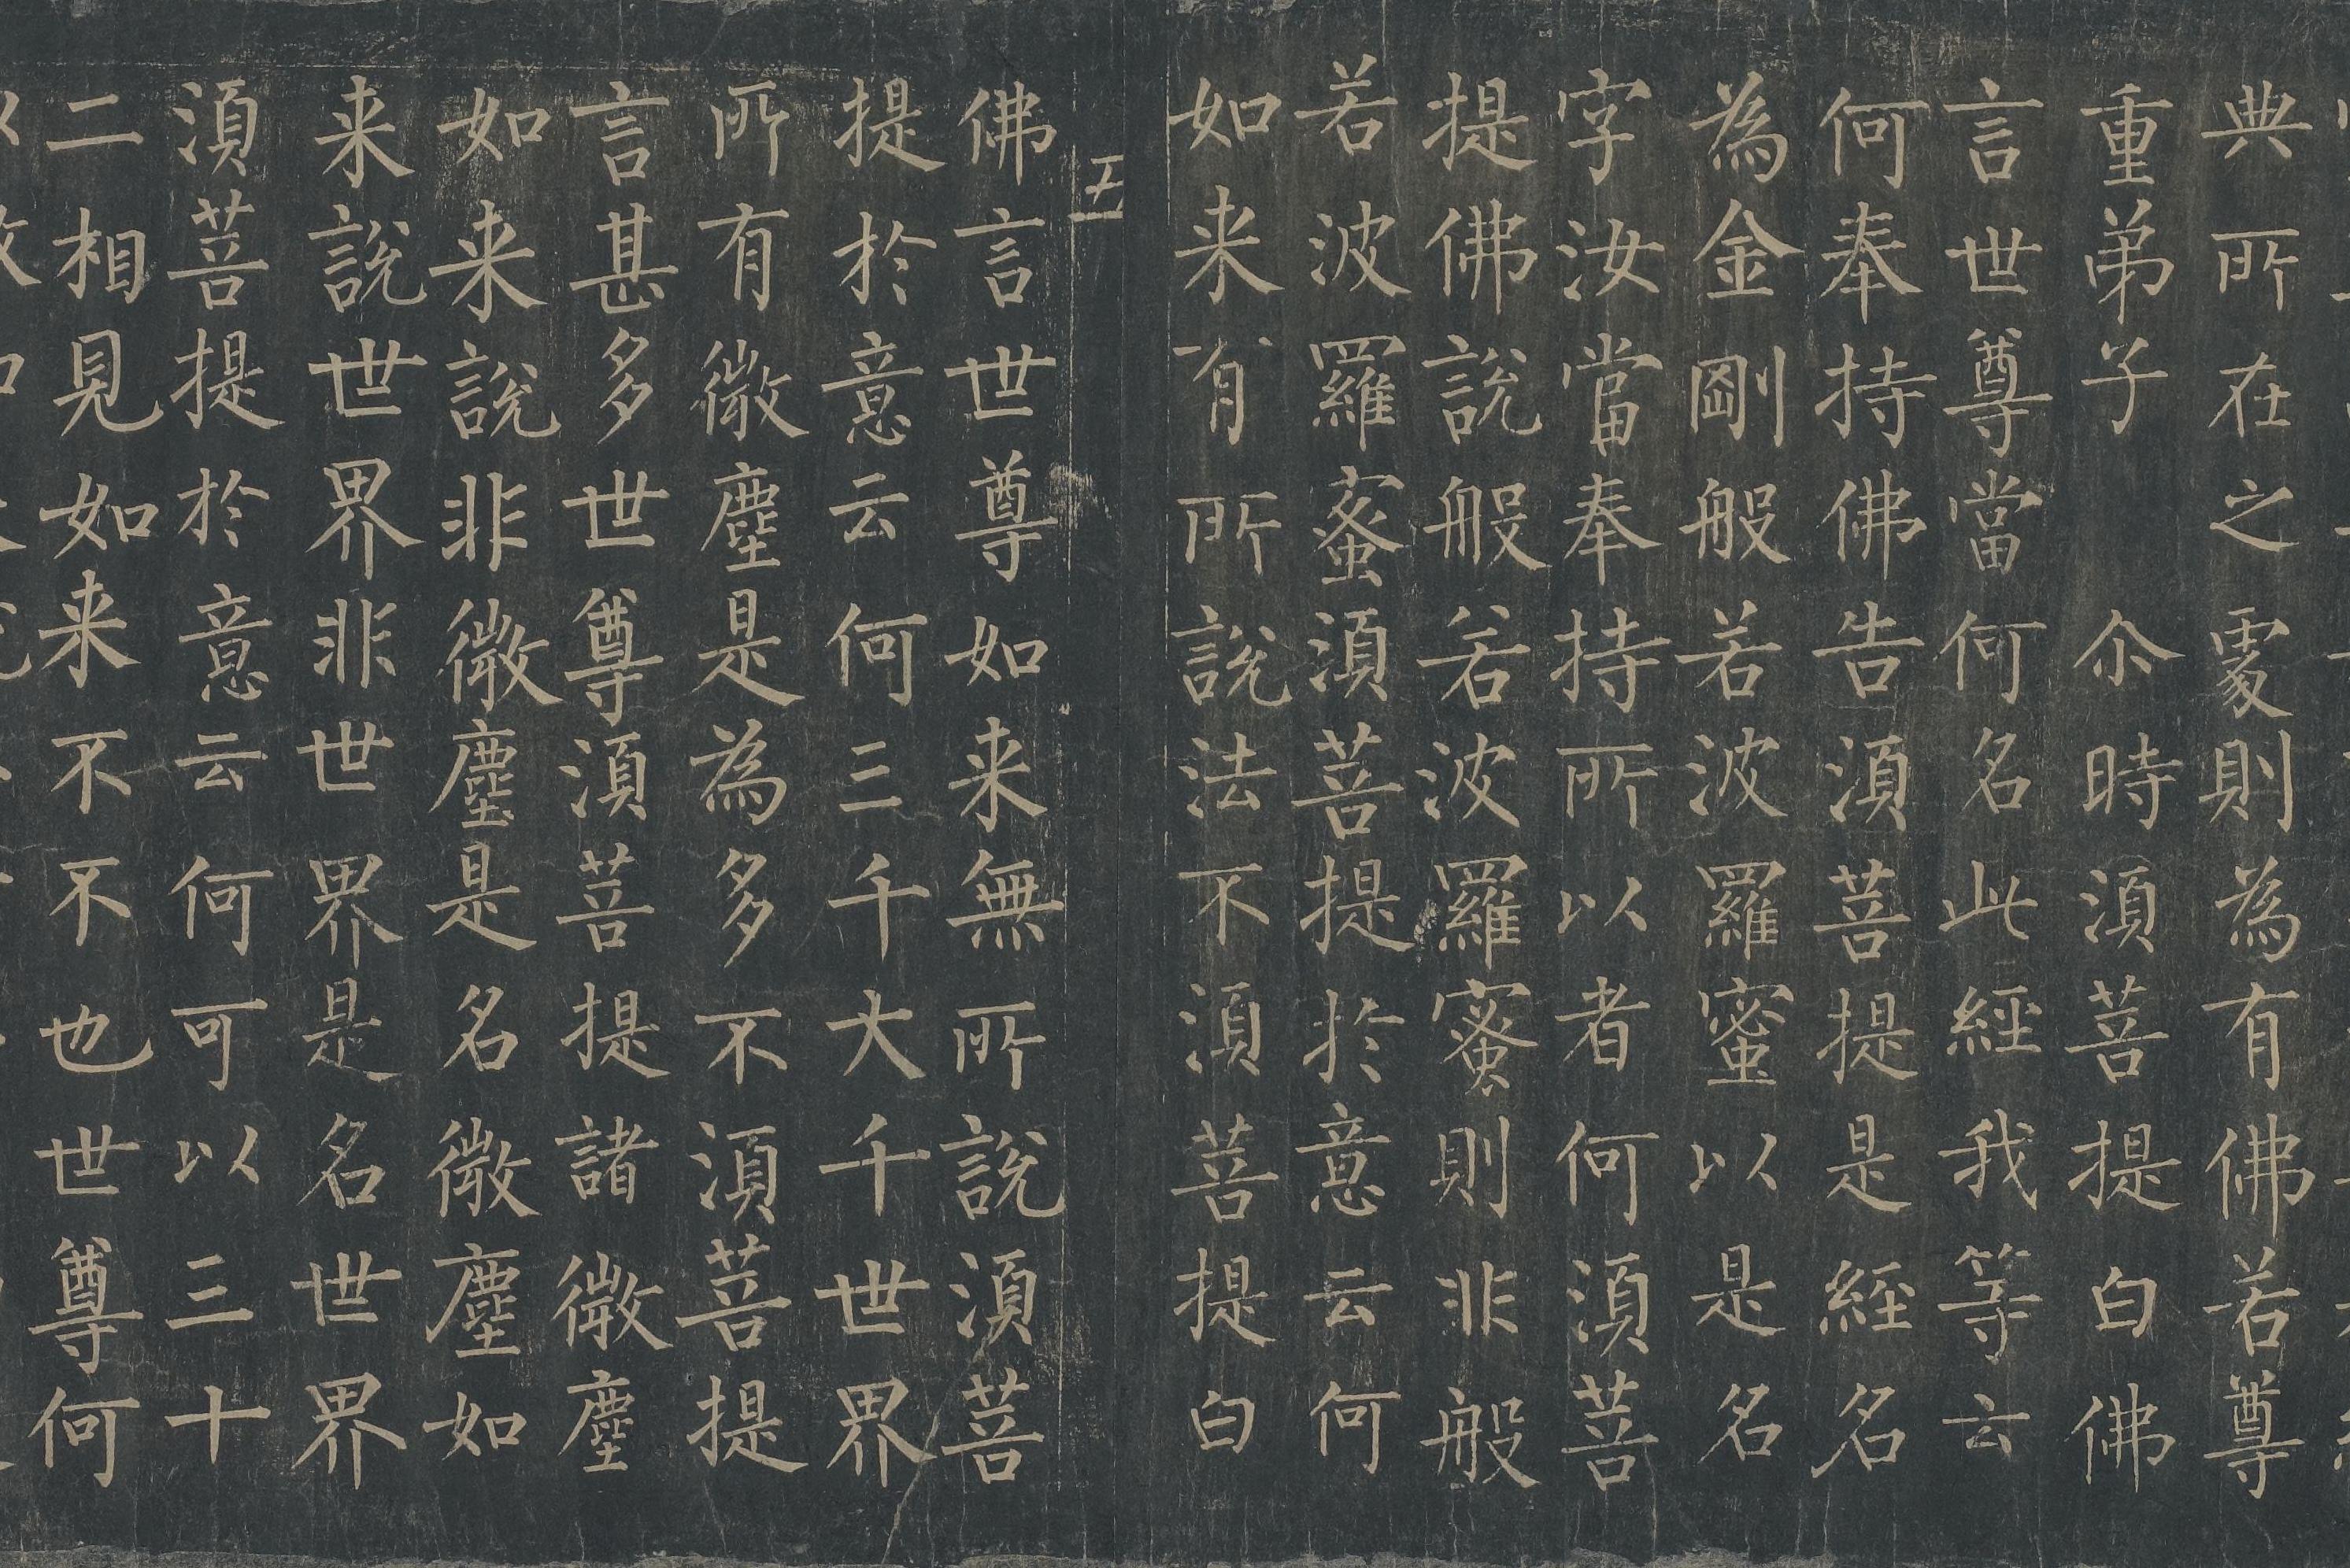 典所在之處則為有佛若尊
重弟子 尒時須菩提白佛
言世尊當何名此經我等云
何奉持佛告須菩提是經名
為金剛般若波羅蜜以是名
字汝當奉持所以者何須菩
提佛說般若波羅蜜則非般
若波羅蜜須菩提於意云何
如来有所說法不須菩提白
五
佛言世尊如来無所說須菩
提於意云何三千大千世界
所有微塵是為多不須菩提
言甚多世尊須菩提諸微塵
如来說非微塵是名微塵如
来說世界非世界是名世界
須菩提於意云何可以三十
二相見如来不不也世尊何